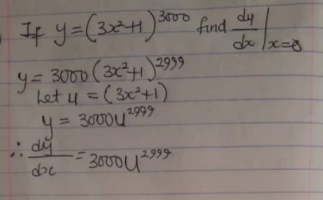 If y = (3x²+1)³⁰⁰⁰ find dy/dx |x=0
y = 3000(3x²+1)²⁹⁹⁹
Let u = (3x²+1)
y = 3000u²⁹⁹⁹
∴ dy/dx = 3000u²⁹⁹⁹